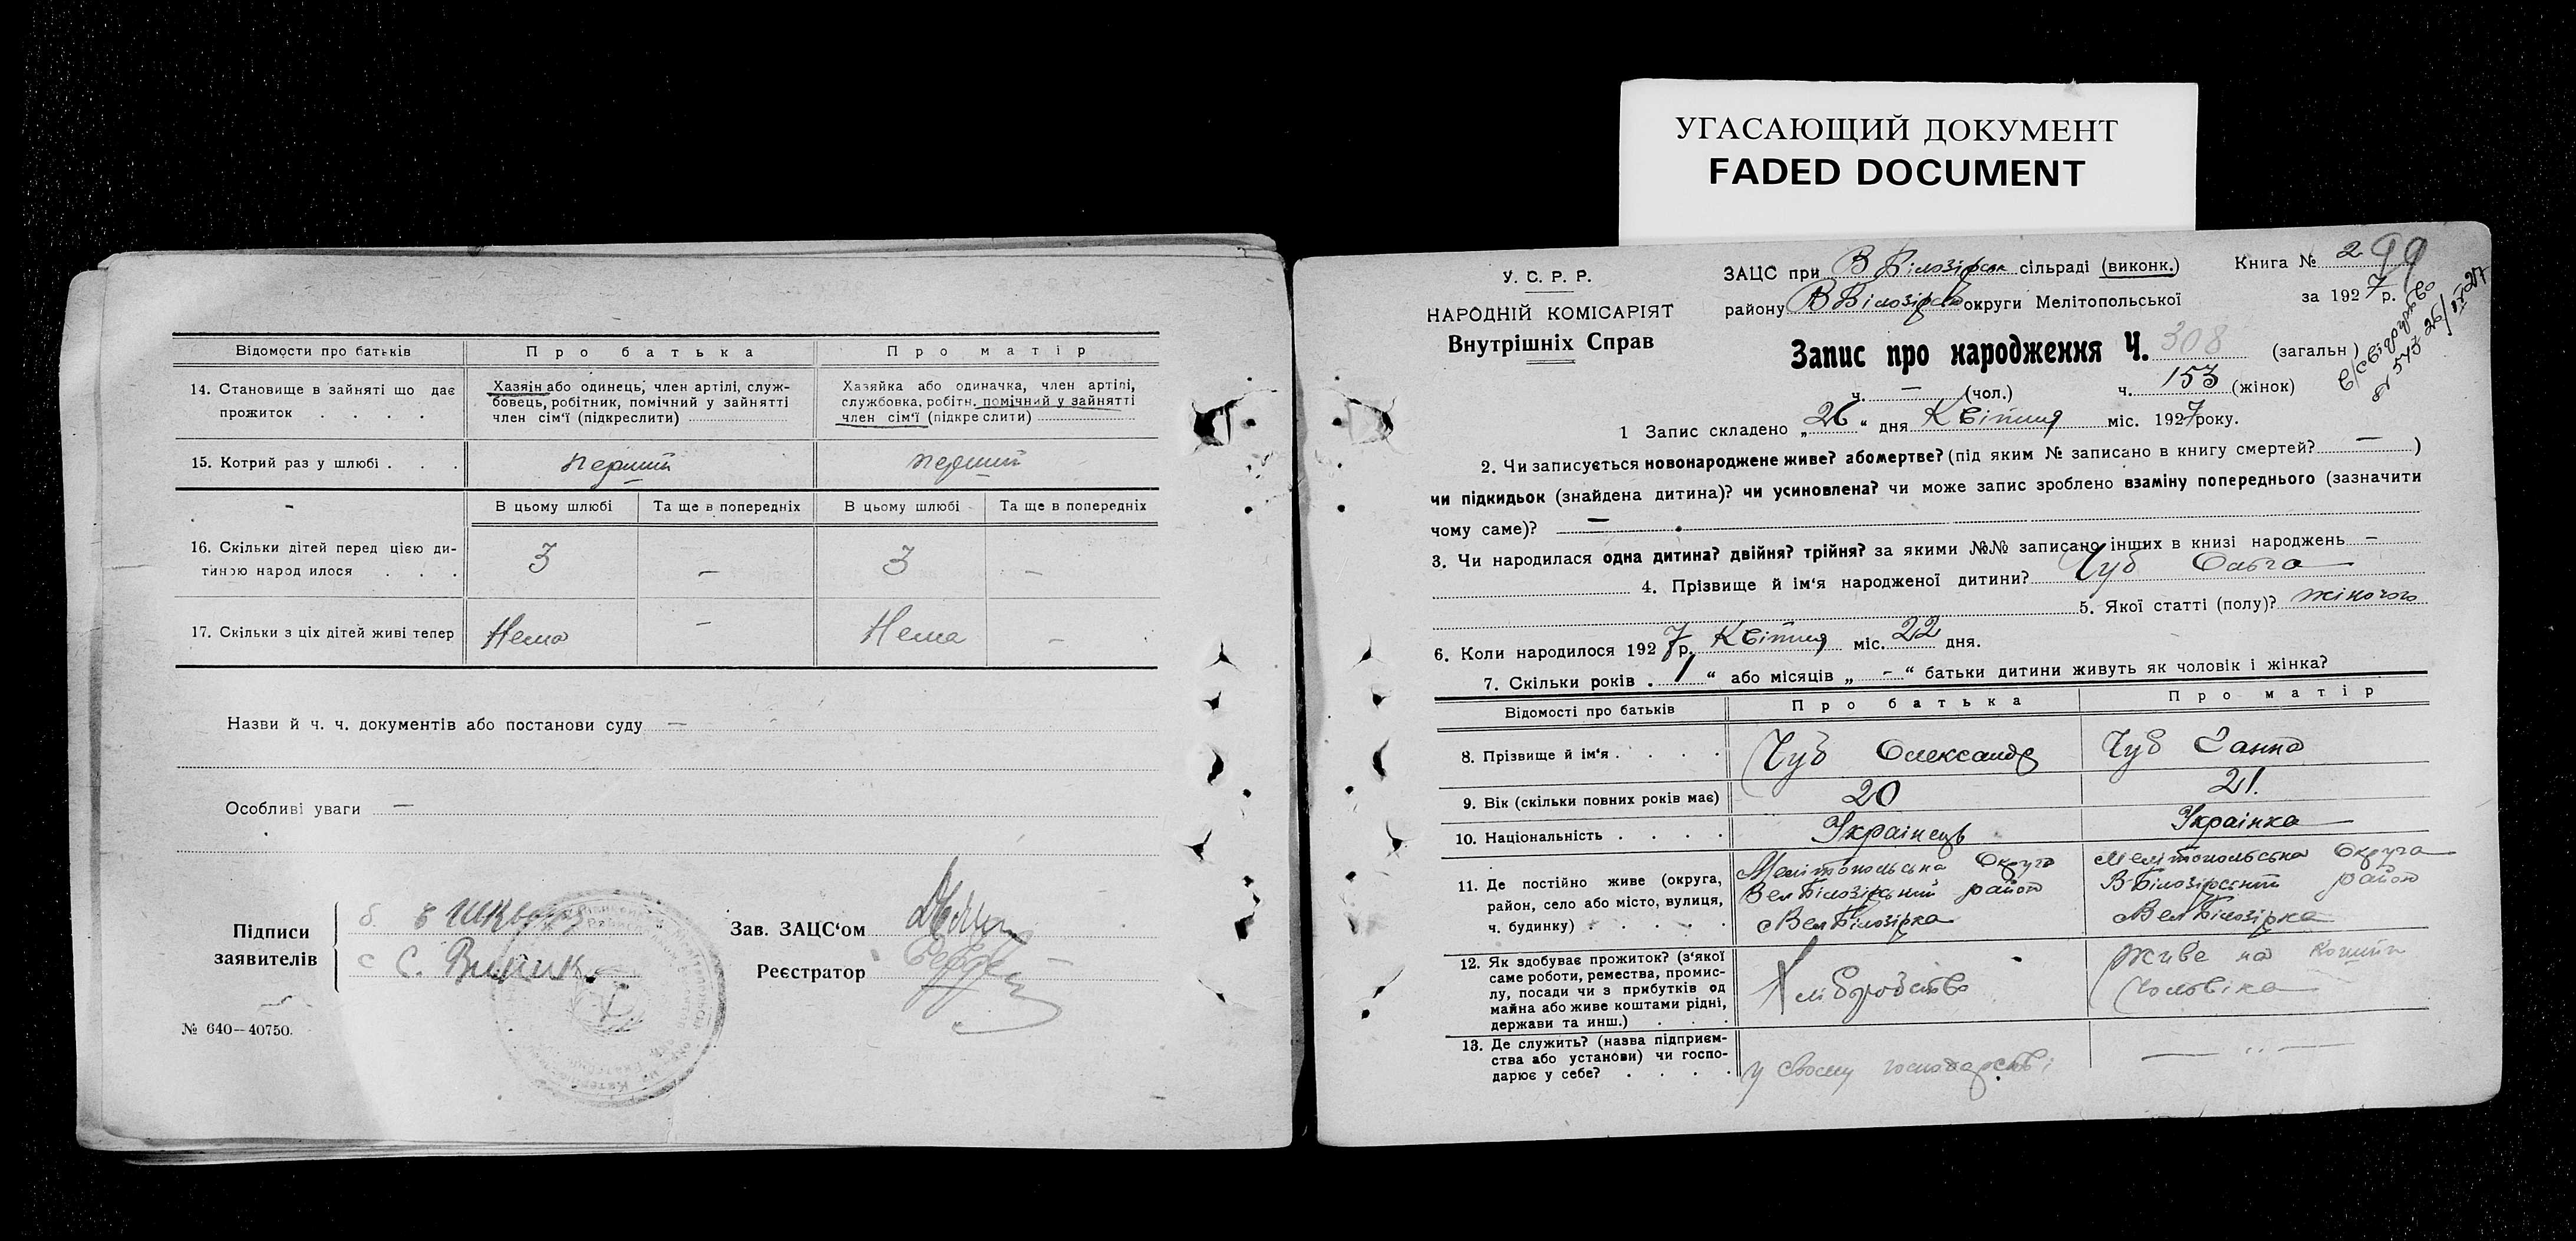 УГАСАЮЩИЙ ДОКУМЕНТ
FADED DOCUMENT
Відомости про батьків
Про батька
Про матір
14. Становище в зайняті що дає прожиток . . . .
Хазяін або одинець, член артілі, служ-
бовець, робітник, помічний у зайнятті
член сім'ї (підкреслити)
Хазяйка або одиначка, член артілі,
службовка, робітн. помічний у зайнятті
член сім'ї (підкреслити)
15. Котрий раз у шлюбі . . .
перший
перший
В цьому шлюбі
Та ще в попередніх
В цьому шлюбі
Та ще в попередніх
16. Скільки дітей перед цією ди-
тиною народилося . . .
3 — 3 —
17. Скільки з ціх дітей живі тепер
Нема — Нема —
Назви й ч. ч. документів або постанови суду —
Особливі уваги —
Підписи
заявителів
Зав. ЗАЦС'ом
Реєстратор
№ 640—40750.
У. С. Р. Р.
НАРОДНІЙ КОМІСАРІЯТ
Внутрішніх Справ
ЗАЦС при В Білозірськ сільраді (виконк.)
району В Білозірськ округи Мелітопольської
Книга № 2
99
за 1927 р.
26/IV 27
Запис про народження Ч. 308 (загальн)
ч. — (чол.) ч. 153 (жінок)
1 Запис складено „26“ дня Квітня міс. 1927 року.
2. Чи записується новонароджене живе? або мертве? (під яким № записано в книгу смертей? — )
чи підкидьок (знайдена дитина)? чи усиновлена? чи може запис зроблено взаміну попереднього (зазначити
чому саме)? —
3. Чи народилася одна дитина? двійня? трійня? за якими №№ записано інших в книзі народжень —
4. Прізвище й ім'я народженої дитини? Чуб Ольга
5. Якої статті (полу)? жіночого
6. Коли народилося 1927 р. Квітня міс. 22 дня.
7. Скільки років . 1 “ або місяців „ - “ батьки дитини живуть як чоловік і жінка?
Відомості про батьків
Про батька
Про матір
8. Прізвище й ім'я . . . .
Чуб Олександр
Чуб Ганна
9. Вік (скільки повних років має)
20
21.
10. Національність . . . .
Українець
Українка
11. Де постійно живе (округа,
район, село або місто, вулиця,
ч. будинку) . . . .
Мелітопольська Округа
Вел Білозірський район
с Вел Білозірка
Мелітопольська Округа
В-Білозірський район
с Вел Білозірка
12. Як здобуває прожиток? (з'якої
саме роботи, ремества, промис-
лу, посади чи з прибутків од
майна або живе коштами рідні,
держави та инш.) . . .
Хліборобство
живе на кошти
чоловіка
13. Де служить? (назва підприєм-
ства або установи) чи госпо-
дарює у себе? . . . .
у своєму господарстві
— " —